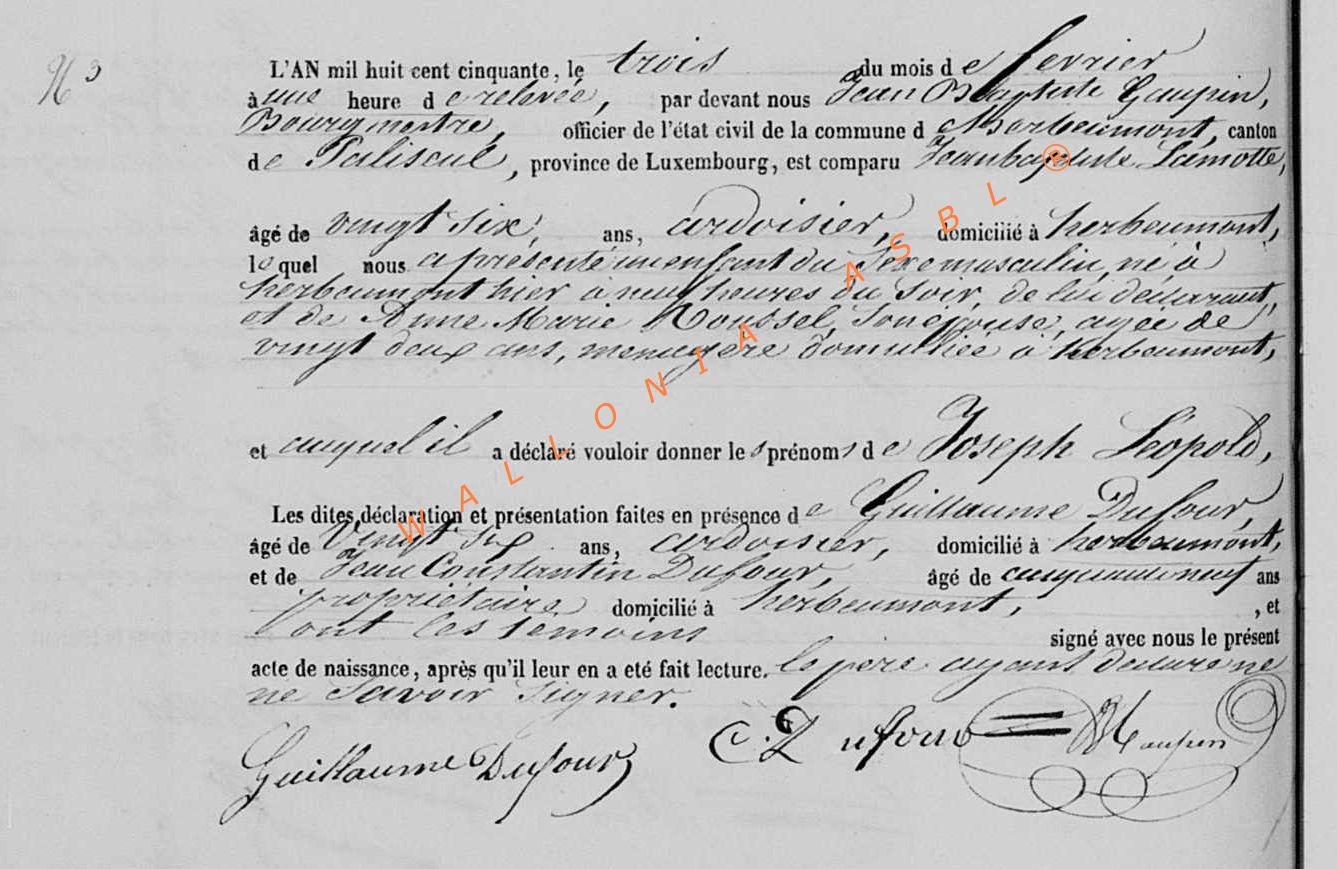 N 3
L'AN mil huit cent cinquante, le trois du mois de fevrier
à une heure de relevée, par devant nous Jean Baptiste Gaupin,
Bourgmestre, officier de l'état civil de la commune d'herbeumont, canton
de Paliseul, province de Luxembourg, est comparu Jean baptiste Lamotte,
âgé de vingt six, ans, ardoisier, domicilié à herbeumont,
lequel nous a présenté un enfant du sexe masculin, né à
herbeumont hier à neuf heures du soir, de lui déclarant,
et de Anne Marie Roussel, son épouse, agée de
vingt deux ans, menagère domiciliée à herbeumont,
et auquel il a déclaré vouloir donner les prénoms de Joseph Léopold,
Les dites déclaration et présentation faites en présence de Guillaume Dufour,
âgé de vingt six ans, ardoisier, domicilié à herbeumont,
et de Jean Constantin Dufour, âgé de cinquante neuf ans
propriétaire domicilié à herbeumont, , et
ont les témoins signé avec nous le présent
acte de naissance, après qu'il leur en a eté fait lecture. le pere ayant declare ne
ne savoir signer.
Guillaume Dufour C. Dufour Gaupin
WALLONIA ASBL ®